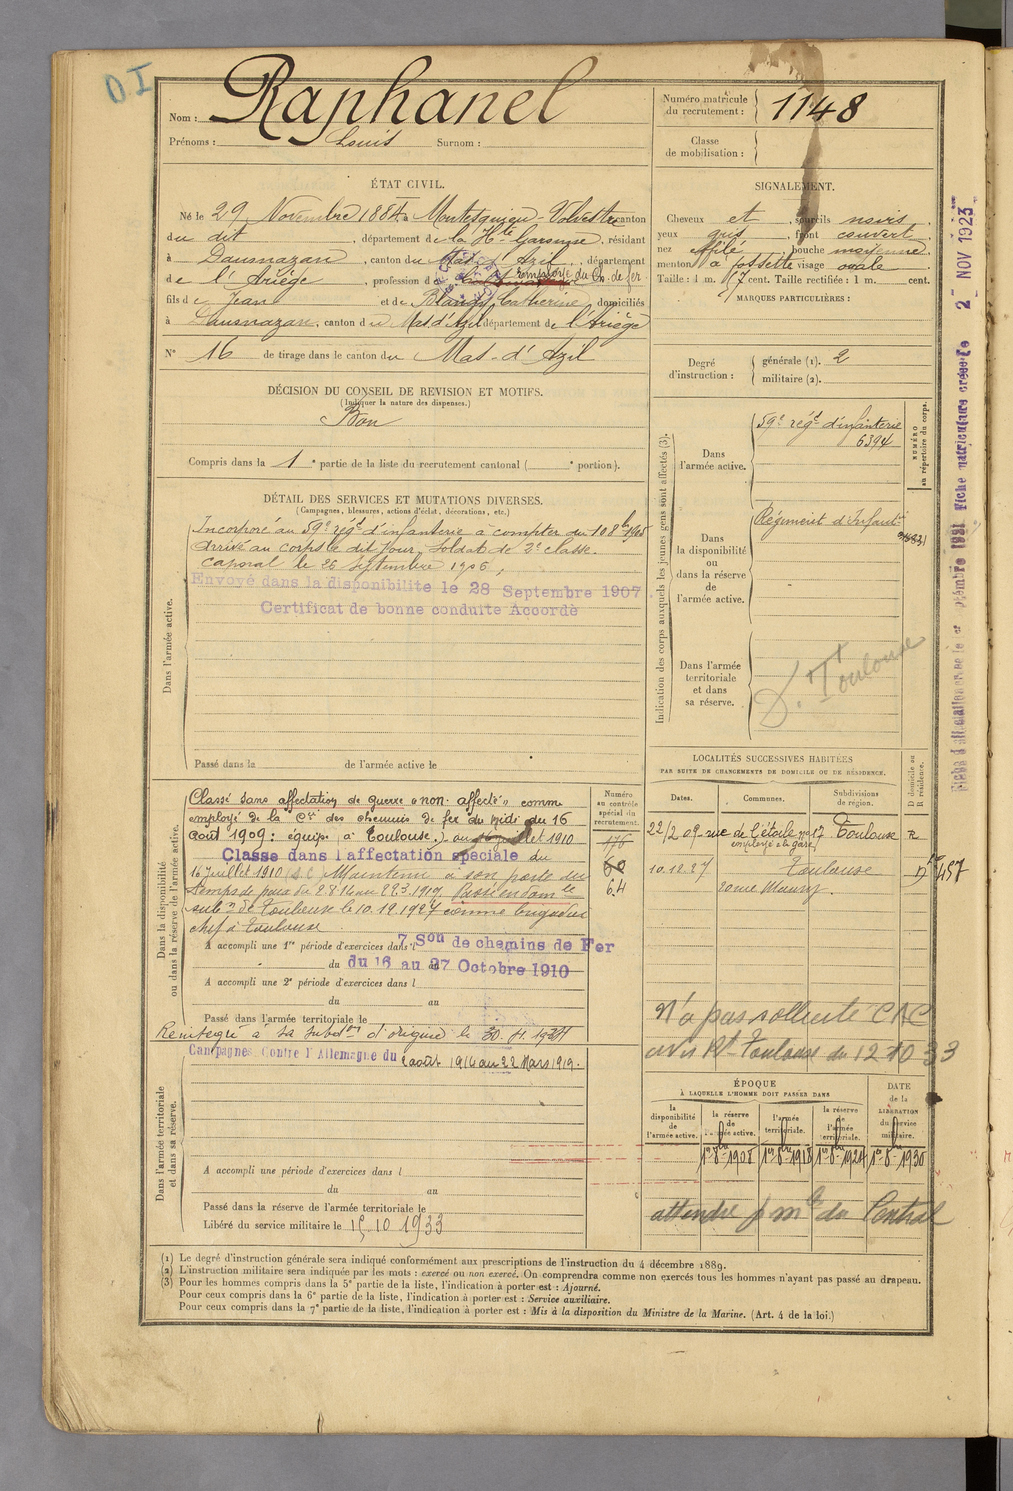 D I
Nom : Raphanel
Prénoms : Louis Surnom :
Numéro matricule du recrutement : 1148
Classe de mobilisation :
ÉTAT CIVIL.
Né le 29 Novembre 1884, à Montesquieu-Volvestre canton
du dit, département de la Hte Garonne, résidant
à Daumazan, canton du Mas d'Azil, département
de l'Ariège, profession de employé du Ch. de fer
fils de Jean et de Blangy Catherine, domiciliés
à Daumazan, canton du Mas d'Azil département de l'Ariège
N° 16 de tirage dans le canton du Mas-d'Azil
SIGNALEMENT.
Cheveux et, sourcils noirs,
yeux gris, front couvert,
nez effilé, bouche moyenne,
menton à fossette visage ovale
Taille : 1 m. 67 cent. Taille rectifiée : 1 m. cent.
MARQUES PARTICULIÈRES :
Degré d'instruction : générale (1). 2
militaire (2).
DÉCISION DU CONSEIL DE REVISION ET MOTIFS.
(Indiquer la nature des dispenses.)
Bon
Compris dans la 1e partie de la liste du recrutement cantonal ( e portion).
DÉTAIL DES SERVICES ET MUTATIONS DIVERSES.
(Campagnes, blessures, actions d'éclat, décorations, etc.)
Dans l'armée active.
Incorporé au 59e régt d'infanterie à compter du 10 8bre 1905
Arrivé au corps le dit jour, soldat de 2e classe.
Caporal le 26 septembre 1906,
Envoyé dans la disponibilité le 28 Septembre 1907.
Certificat de bonne conduite Accordé
Passé dans la de l'armée active le
Indication des corps auxquels les jeunes gens sont affectés (3).
Dans l'armée active.
59e régt d'infanterie
6394
NUMÉRO au répertoire du corps.
Dans la disponibilité ou dans la réserve de l'armée active.
Régiment d'Infant
Dans l'armée territoriale et dans sa réserve.
S. T Toulouse
2 - NOV 1923
Fiche matriculaire créée le
Dans la disponibilité ou dans la réserve de l'armée active.
Classé sans affectation de guerre "non affecté" comme
employé de la Cie des chemins de fer du Midi du 16
Août 1909 : équipe, à Toulouse.) au 16 juillet 1910
Classé dans l'affectation spéciale du
16 Juillet 1910 (S.C.) Maintenu à son poste du
temps de paix du 2 8 14 au 22 3 1919. Passé en dom le
subn de Toulouse le 10.12.1927 comme brigadier
chef à Toulouse
A accompli une 1re période d'exercices dans l 7 Son de chemins de Fer
du du 16 au 27 Octobre 1910
A accompli une 2e période d'exercices dans l
du au
Passé dans l'armée territoriale le
Réintégré à sa subdon d'origine le
Numéro au contrôle spécial du recrutement.
176
62
64
LOCALITÉS SUCCESSIVES HABITÉES
PAR SUITE DE CHANGEMENTS DE DOMICILE OU DE RÉSIDENCE.
Dates. Communes. Subdivisions de région. D domicile ou R résidence.
22/2 09 rue de l'étoile no 17 Toulouse R
employé à la gare
10.12.27 Toulouse D
N'a pas sollicité CAC
avis Rt Toulouse du 12 10 33
Dans l'armée territoriale et dans sa réserve.
Campagnes Contre l'Allemagne du 2 août 1914 au 22 Mars 1919.
A accompli une période d'exercices dans l
du au
Passé dans la réserve de l'armée territoriale le
Libéré du service militaire le 15.10 1933
ÉPOQUE
À LAQUELLE L'HOMME DOIT PASSER DANS
la disponibilité de l'armée active.
la réserve de l'armée active.
l'armée territoriale.
la réserve de l'armée territoriale.
DATE de la LIBÉRATION du service militaire.
1er 8bre 1908 1er 8bre 1918 1er 8bre 1924 1er 8bre 1930
attendre p mle du Central
(1) Le degré d'instruction générale sera indiqué conformément aux prescriptions de l'instruction du 4 décembre 1889.
(2) L'instruction militaire sera indiquée par les mots : exercé ou non exercé. On comprendra comme non exercés tous les hommes n'ayant pas passé au drapeau.
(3) Pour les hommes compris dans la 5e partie de la liste, l'indication à porter est : Ajourné.
Pour ceux compris dans la 6e partie de la liste, l'indication à porter est : Service auxiliaire.
Pour ceux compris dans la 7e partie de la liste, l'indication à porter est : Mis à la disposition du Ministre de la Marine. (Art. 4 de la loi.)